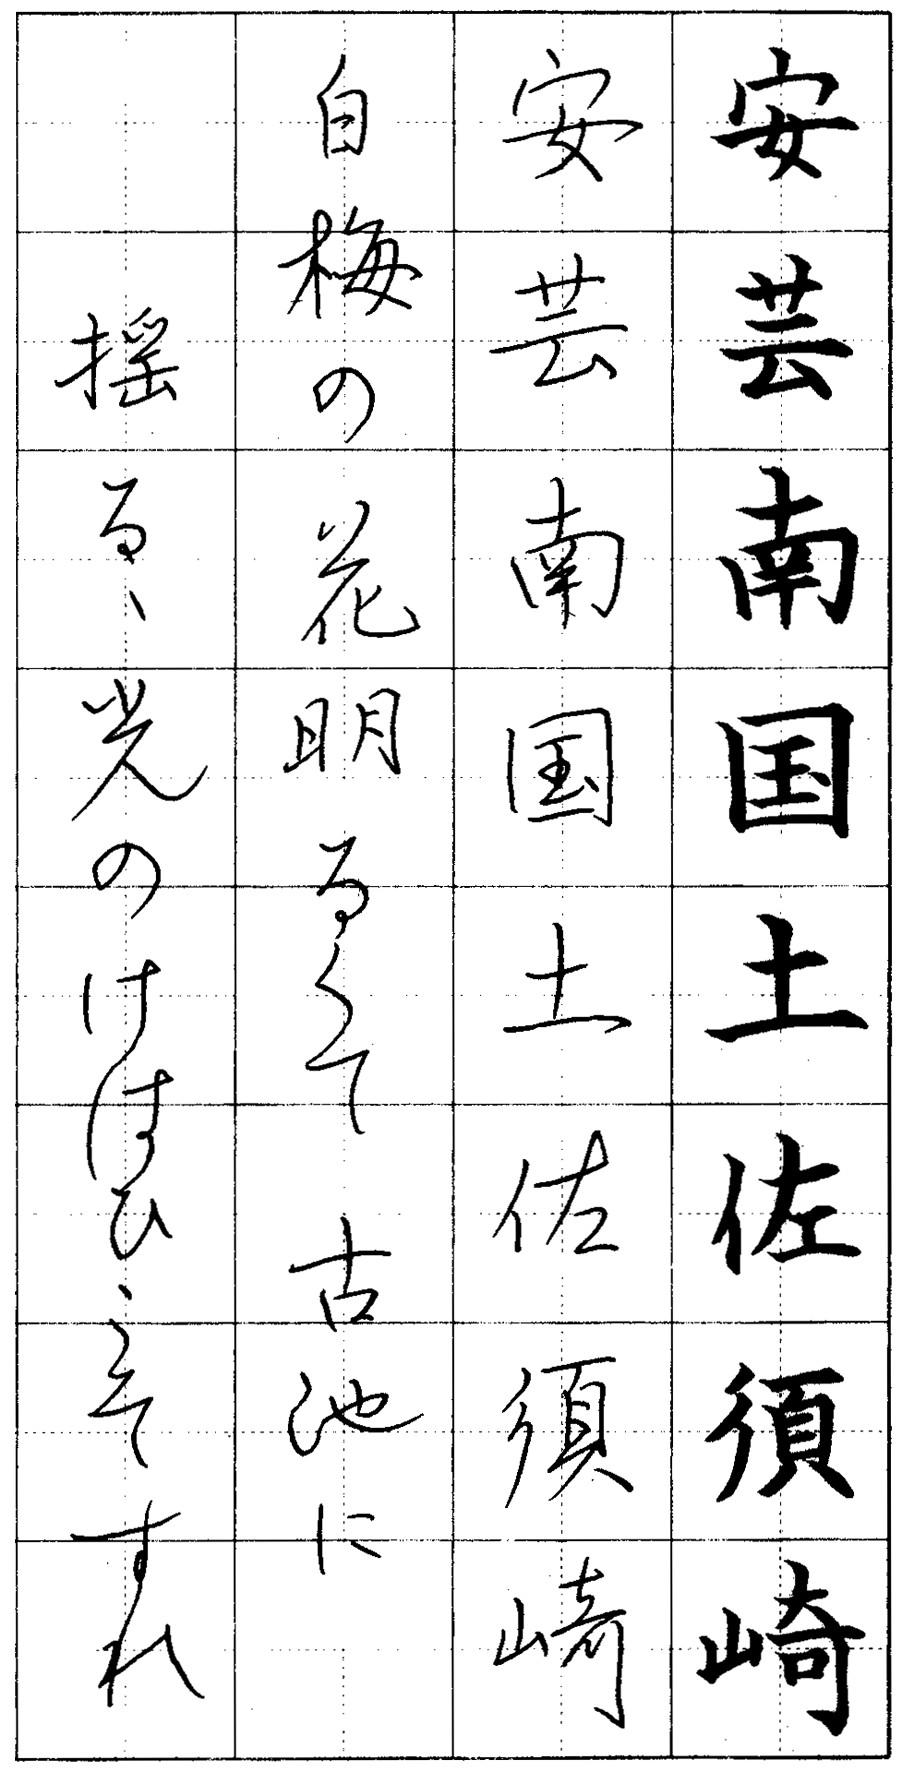 安芸南国土佐須崎
安芸南国土佐須崎
白梅の花明るくて古池に
揺るゝ光のけはひこそすれ